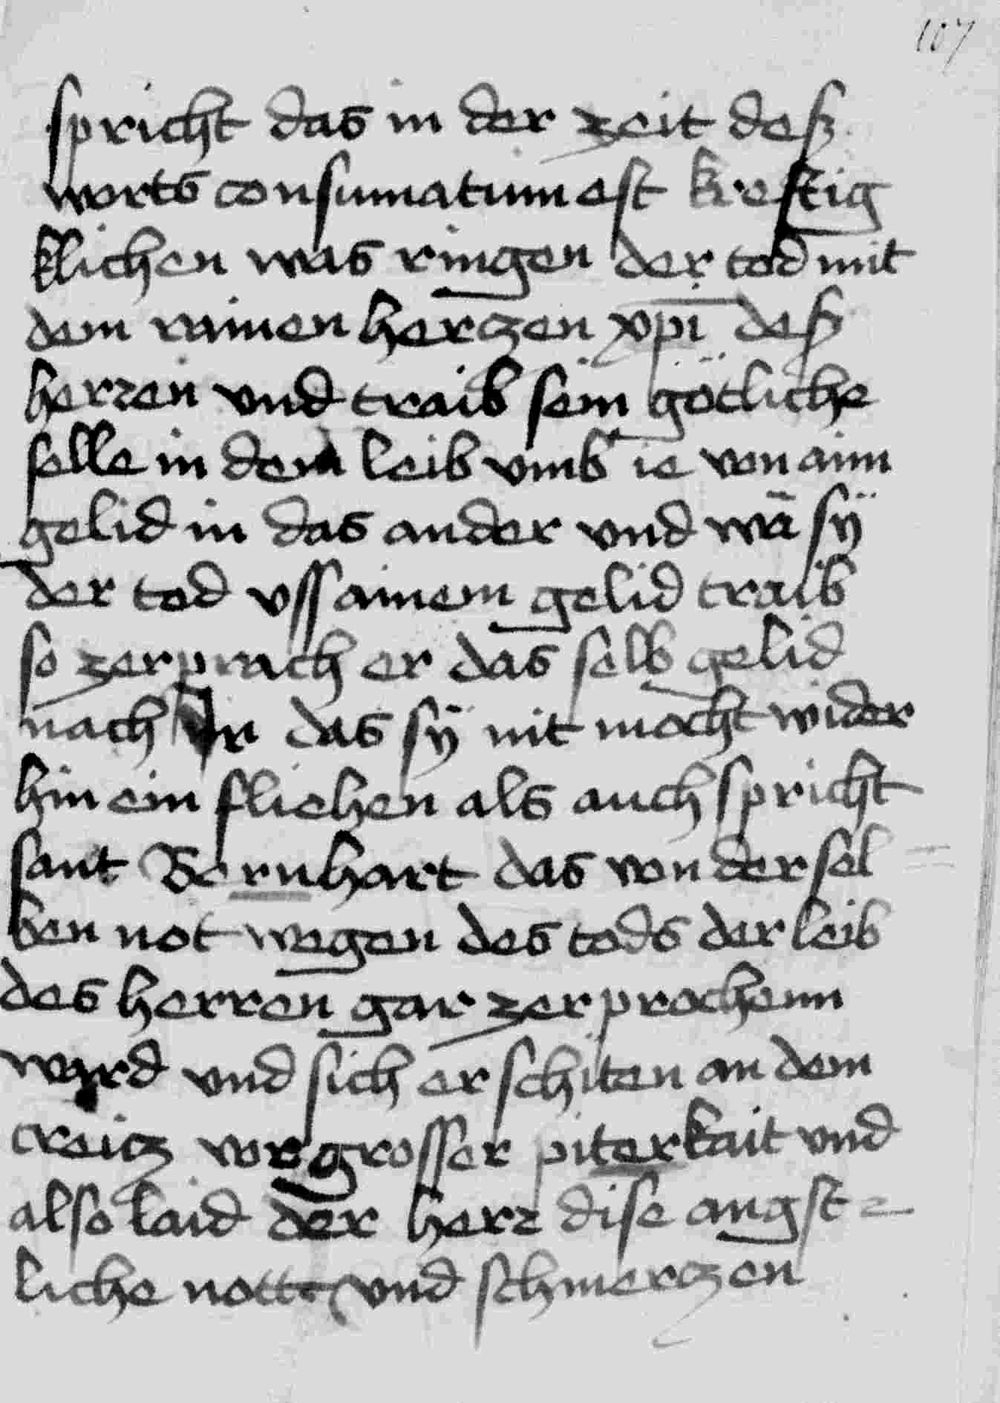 107
spricht das in der zeit deß
worts consumatum est kreftig
klichen was ringen der tod mit
dem rainen herczen xpi deß
herren vnd traib sein götliche
selle in dem leib vmb ie von aim
gelid in das ander vnd wā sÿ
der tod vss ainem gelid traib
so zerprach er das selb gelid
nach Ir das sÿ nit mocht wider
hin ein fliehen als auch spricht
sant Bernhart das von der sel =
ben not wegen des tods der leib
des herren gar zerprochenn
ward vnd sich erschiten an dem
creicz vor grosser piterkait vnd
also laid der herr dise angst =
liche nott vnd schmerczen